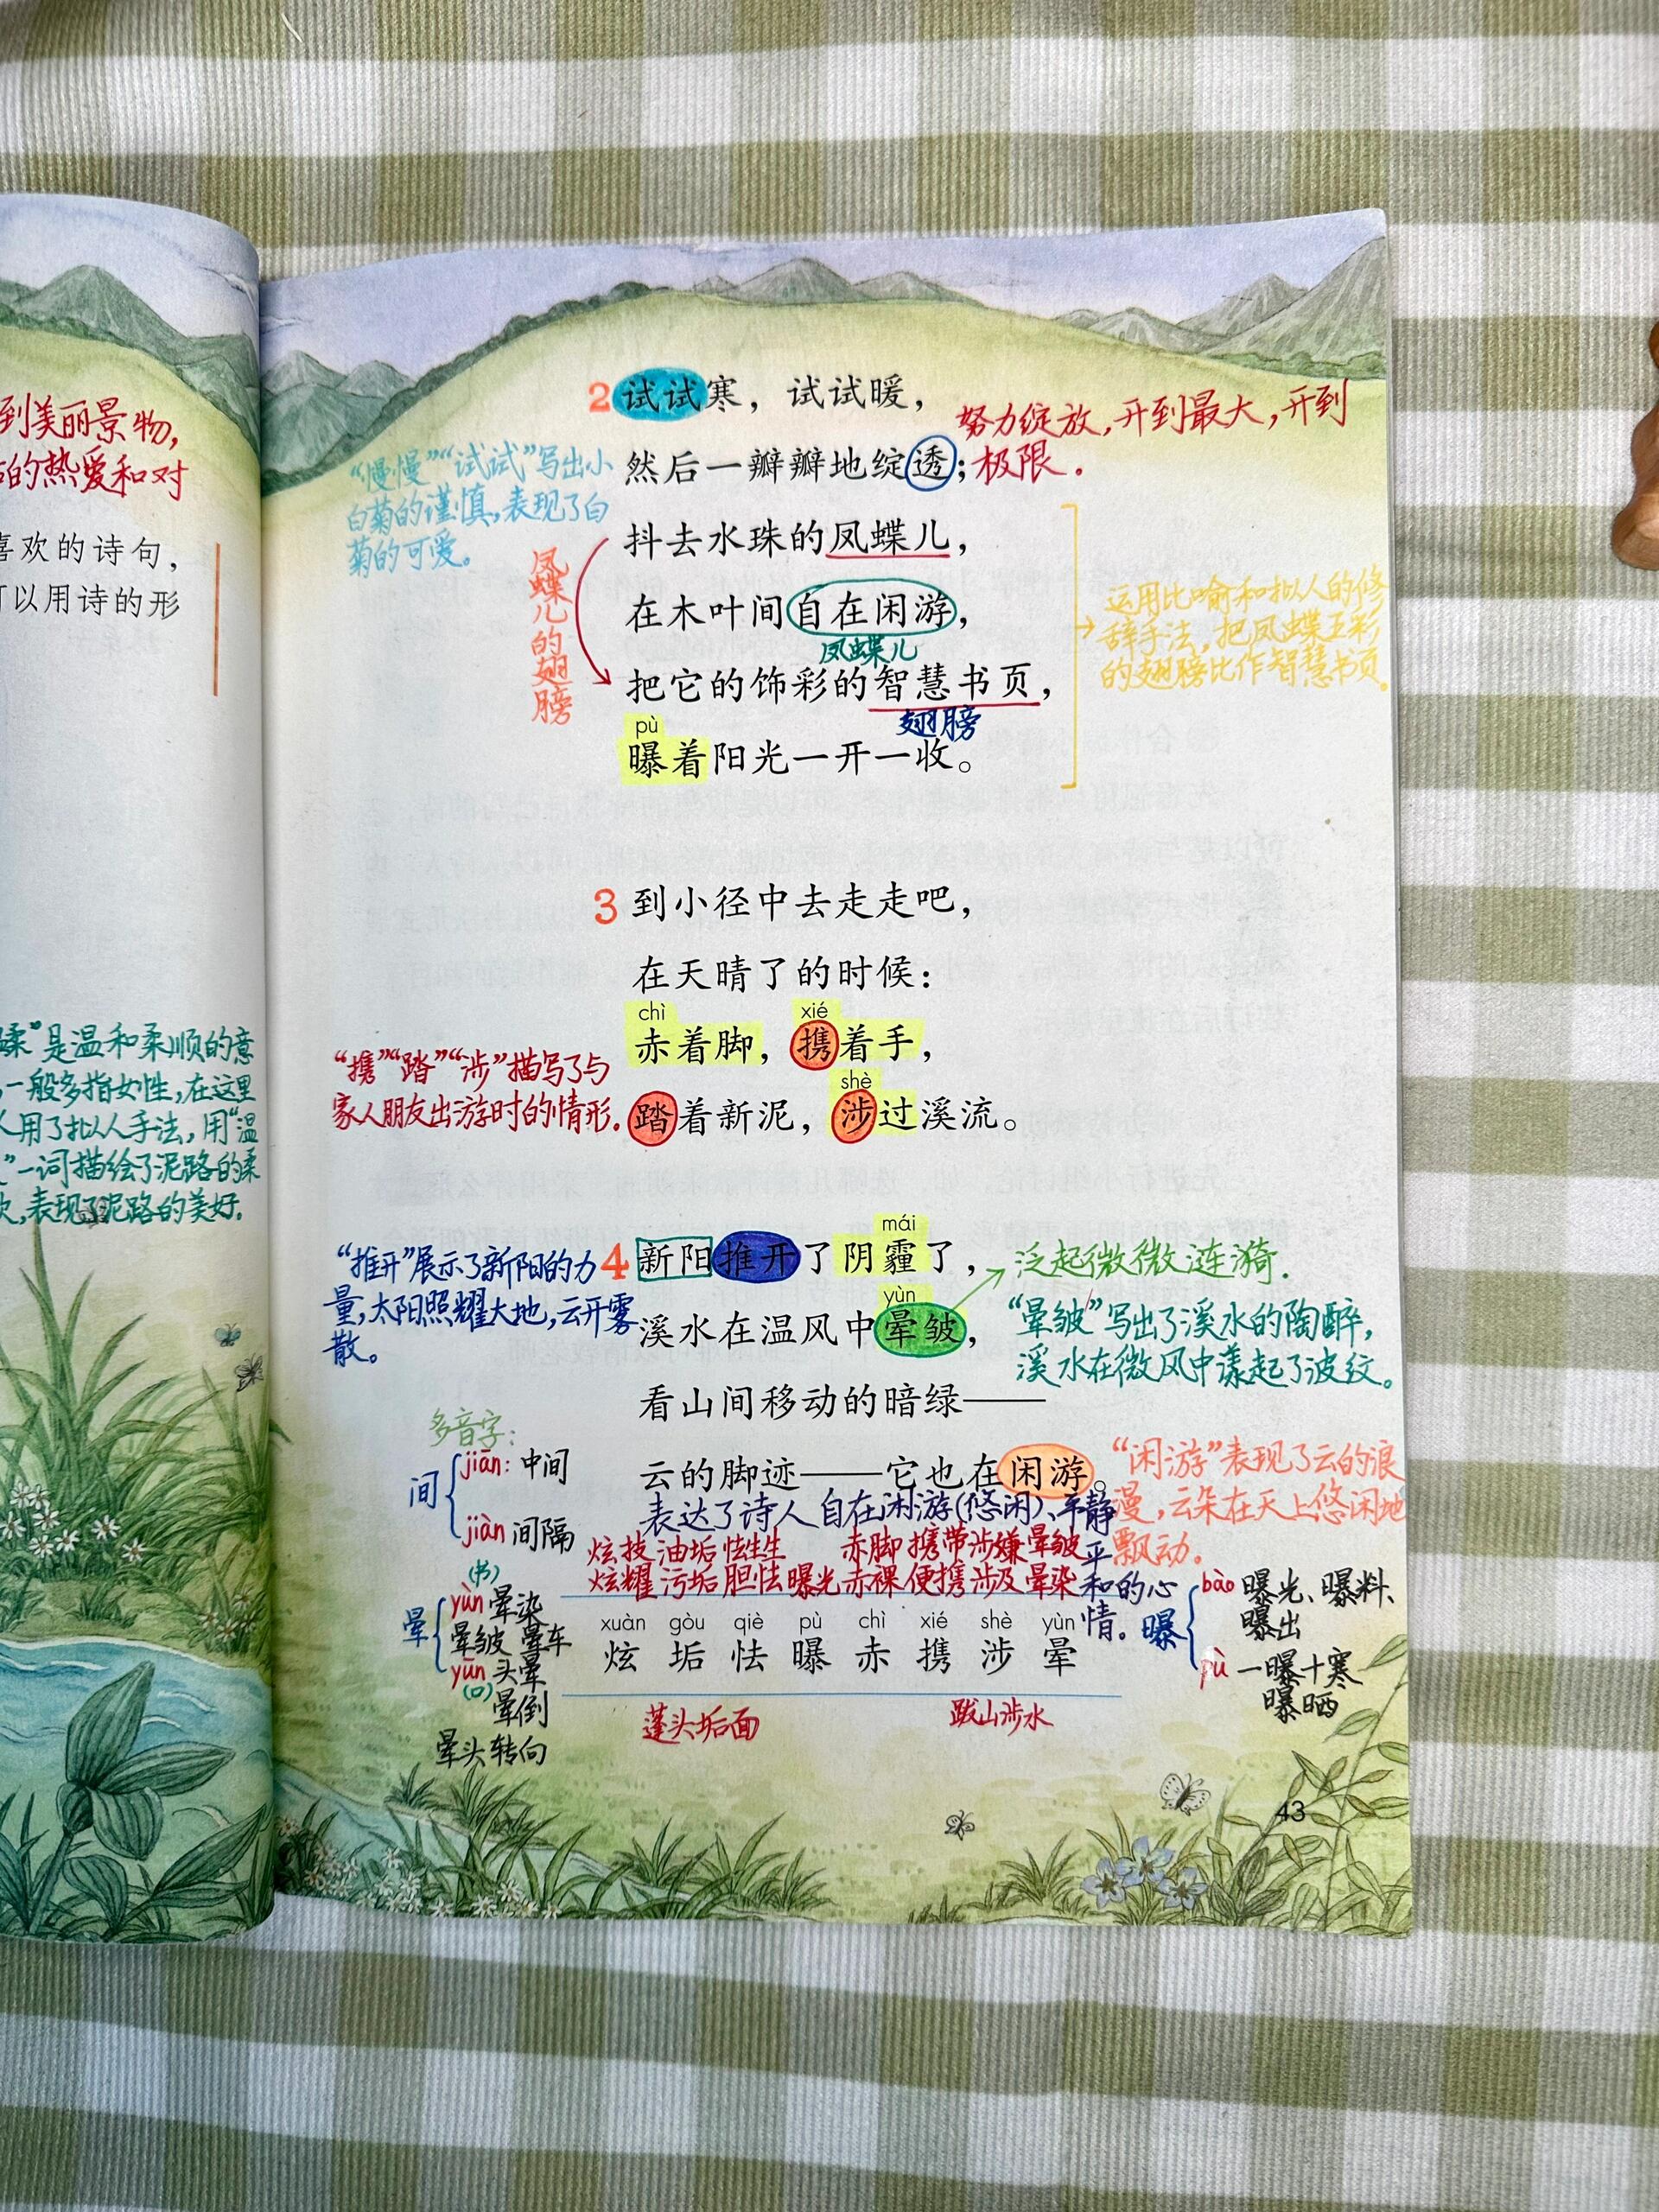 到美丽景物，
的热爱和对
喜欢的诗句，
可以用诗的形
柔”是温和柔顺的意
，一般多指女性，在这里
人用了拟人手法，用“温
”一词描绘了泥路的柔
，表现了泥路的美好。
2 试试寒，试试暖，
努力绽放，开到最大，开到
极限。
“慢慢”“试试”写出小
白菊的谨慎，表现了白
菊的可爱。
然后一瓣瓣地绽透；
抖去水珠的凤蝶儿，
凤蝶儿的翅膀
在木叶间自在闲游，
凤蝶儿
运用比喻和拟人的修
辞手法，把凤蝶五彩
的翅膀比作智慧书页。
把它的饰彩的智慧书页，
翅膀
pù
曝着阳光一开一收。
3 到小径中去走走吧，
在天晴了的时候：
chì xié
赤着脚，携着手，
“携”“踏”“涉”描写了与
家人朋友出游时的情形。
shè
踏着新泥，涉过溪流。
mái
4 新阳推开了阴霾了，
“推开”展示了新阳的力
量，太阳照耀大地，云开雾
散。
泛起微微涟漪．
yùn
溪水在温风中晕皱，
“晕皱”写出了溪水的陶醉，
溪水在微风中漾起了波纹。
看山间移动的暗绿——
云的脚迹——它也在闲游。
“闲游”表现了云的浪
漫，云朵在天上悠闲地
飘动．
表达了诗人自在闲游（悠闲）、平静
平
和的心
情。
多音字：
间
jiān：中间
jiàn 间隔
炫技 油垢 怯生生 赤脚 携带 涉嫌 晕皱
炫耀 污垢 胆怯 曝光 赤裸 便携 涉及 晕染
xuàn gòu qiè pù chì xié shè yùn
炫 垢 怯 曝 赤 携 涉 晕
蓬头垢面 跋山涉水
晕
（书）
yùn 晕染
晕皱 晕车
yūn 头晕
（口）
晕倒
晕头转向
曝
bào 曝光、曝料、
曝出
pù 一曝十寒
曝晒
43